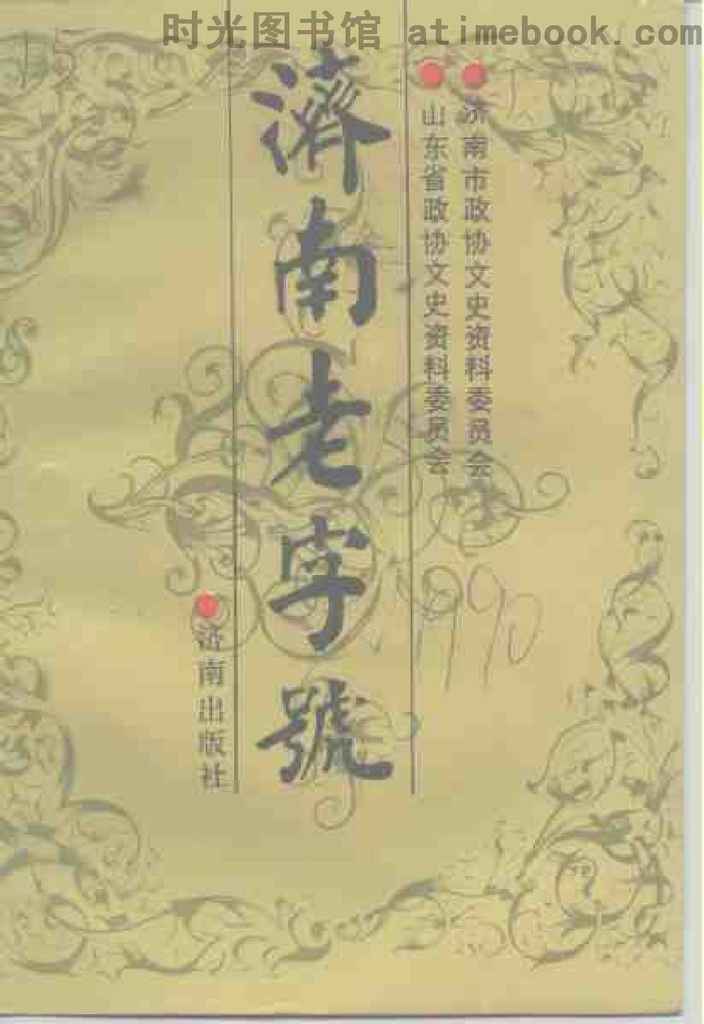 时光图书馆 atimebook.com
济南市政协文史资料委员会
山东省政协文史资料委员会
濟南老字號
济南出版社
1990